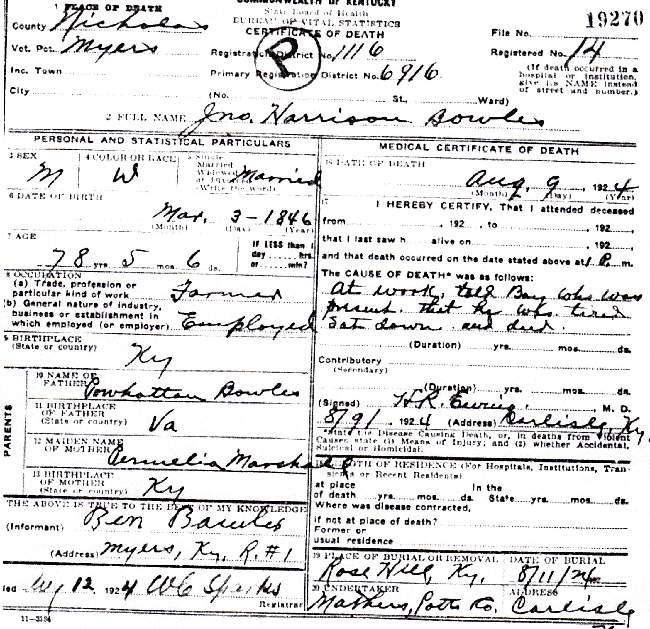 1 PLACE OF DEATH
County Nicholas
Vot. Pct. Myers
Inc. Town
City
COMMONWEALTH OF KENTUCKY
State Board of Health
BUREAU OF VITAL STATISTICS
CERTIFICATE OF DEATH
Registration District No. 1116
Primary Registration District No. 6916
P
(No. St., Ward)
File No. 19270
Registered No. 14
(If death occurred in a
hospital or institution,
give its NAME instead
of street and number.)
2 FULL NAME Jno. Harrison Bowles
PERSONAL AND STATISTICAL PARTICULARS
3 SEX M
4 COLOR OR RACE W
5 Single
Married
Widowed
or Divorced
(Write the word) Married
6 DATE OF BIRTH
Mar. 3 - 1846
(Month) (Day) (Year)
7 AGE
78 yrs. 5 mos. 6 ds.
If LESS than 1
day hrs.
or min?
8 OCCUPATION
(a) Trade, profession or
particular kind of work Farmer
(b) General nature of industry,
business or establishment in
which employed (or employer) Employed
9 BIRTHPLACE
(State or country) Ky
PARENTS
10 NAME OF
FATHER Powhattan Bowles
11 BIRTHPLACE
OF FATHER
(State or country) Va
12 MAIDEN NAME
OF MOTHER Permelia Marshall
13 BIRTHPLACE
OF MOTHER
(State or country) Ky
THE ABOVE IS TRUE TO THE BEST OF MY KNOWLEDGE
(Informant) Ben Bowles
(Address) Myers, Ky, R. #1
led Aug 12 1924 WG Sparks
Registrar
11-3184
MEDICAL CERTIFICATE OF DEATH
16 DATE OF DEATH
Aug. 9, 1924
(Month) (Day) (Year)
17 I HEREBY CERTIFY, That I attended deceased
from , 192 , to , 192
that I last saw h alive on , 192
and that death occurred on the date stated above at P. m.
The CAUSE OF DEATH* was as follows:
At work, told Boy who was
present that he was tired
sat down and died.
(Duration) yrs. mos. ds.
Contributory
(Secondary)
(Duration) yrs. mos. ds.
(Signed) H.R. M. D.
8/9 1924 (Address) Carlisle, Ky.
*State the Disease Causing Death, or, in deaths from Violent
Causes state (1) Means of Injury; and (2) whether Accidental,
Suicidal or Homicidal.
LENGTH OF RESIDENCE (For Hospitals, Institutions, Tran-
sients or Recent Residents)
at place In the
of death yrs. mos. ds. State yrs. mos. ds.
Where was disease contracted,
if not at place of death?
Former or
usual residence
19 PLACE OF BURIAL OR REMOVAL DATE OF BURIAL
Rose Hill, Ky. 8/11/24
20 UNDERTAKER ADDRESS
Mathers, Potts Co. Carlisle